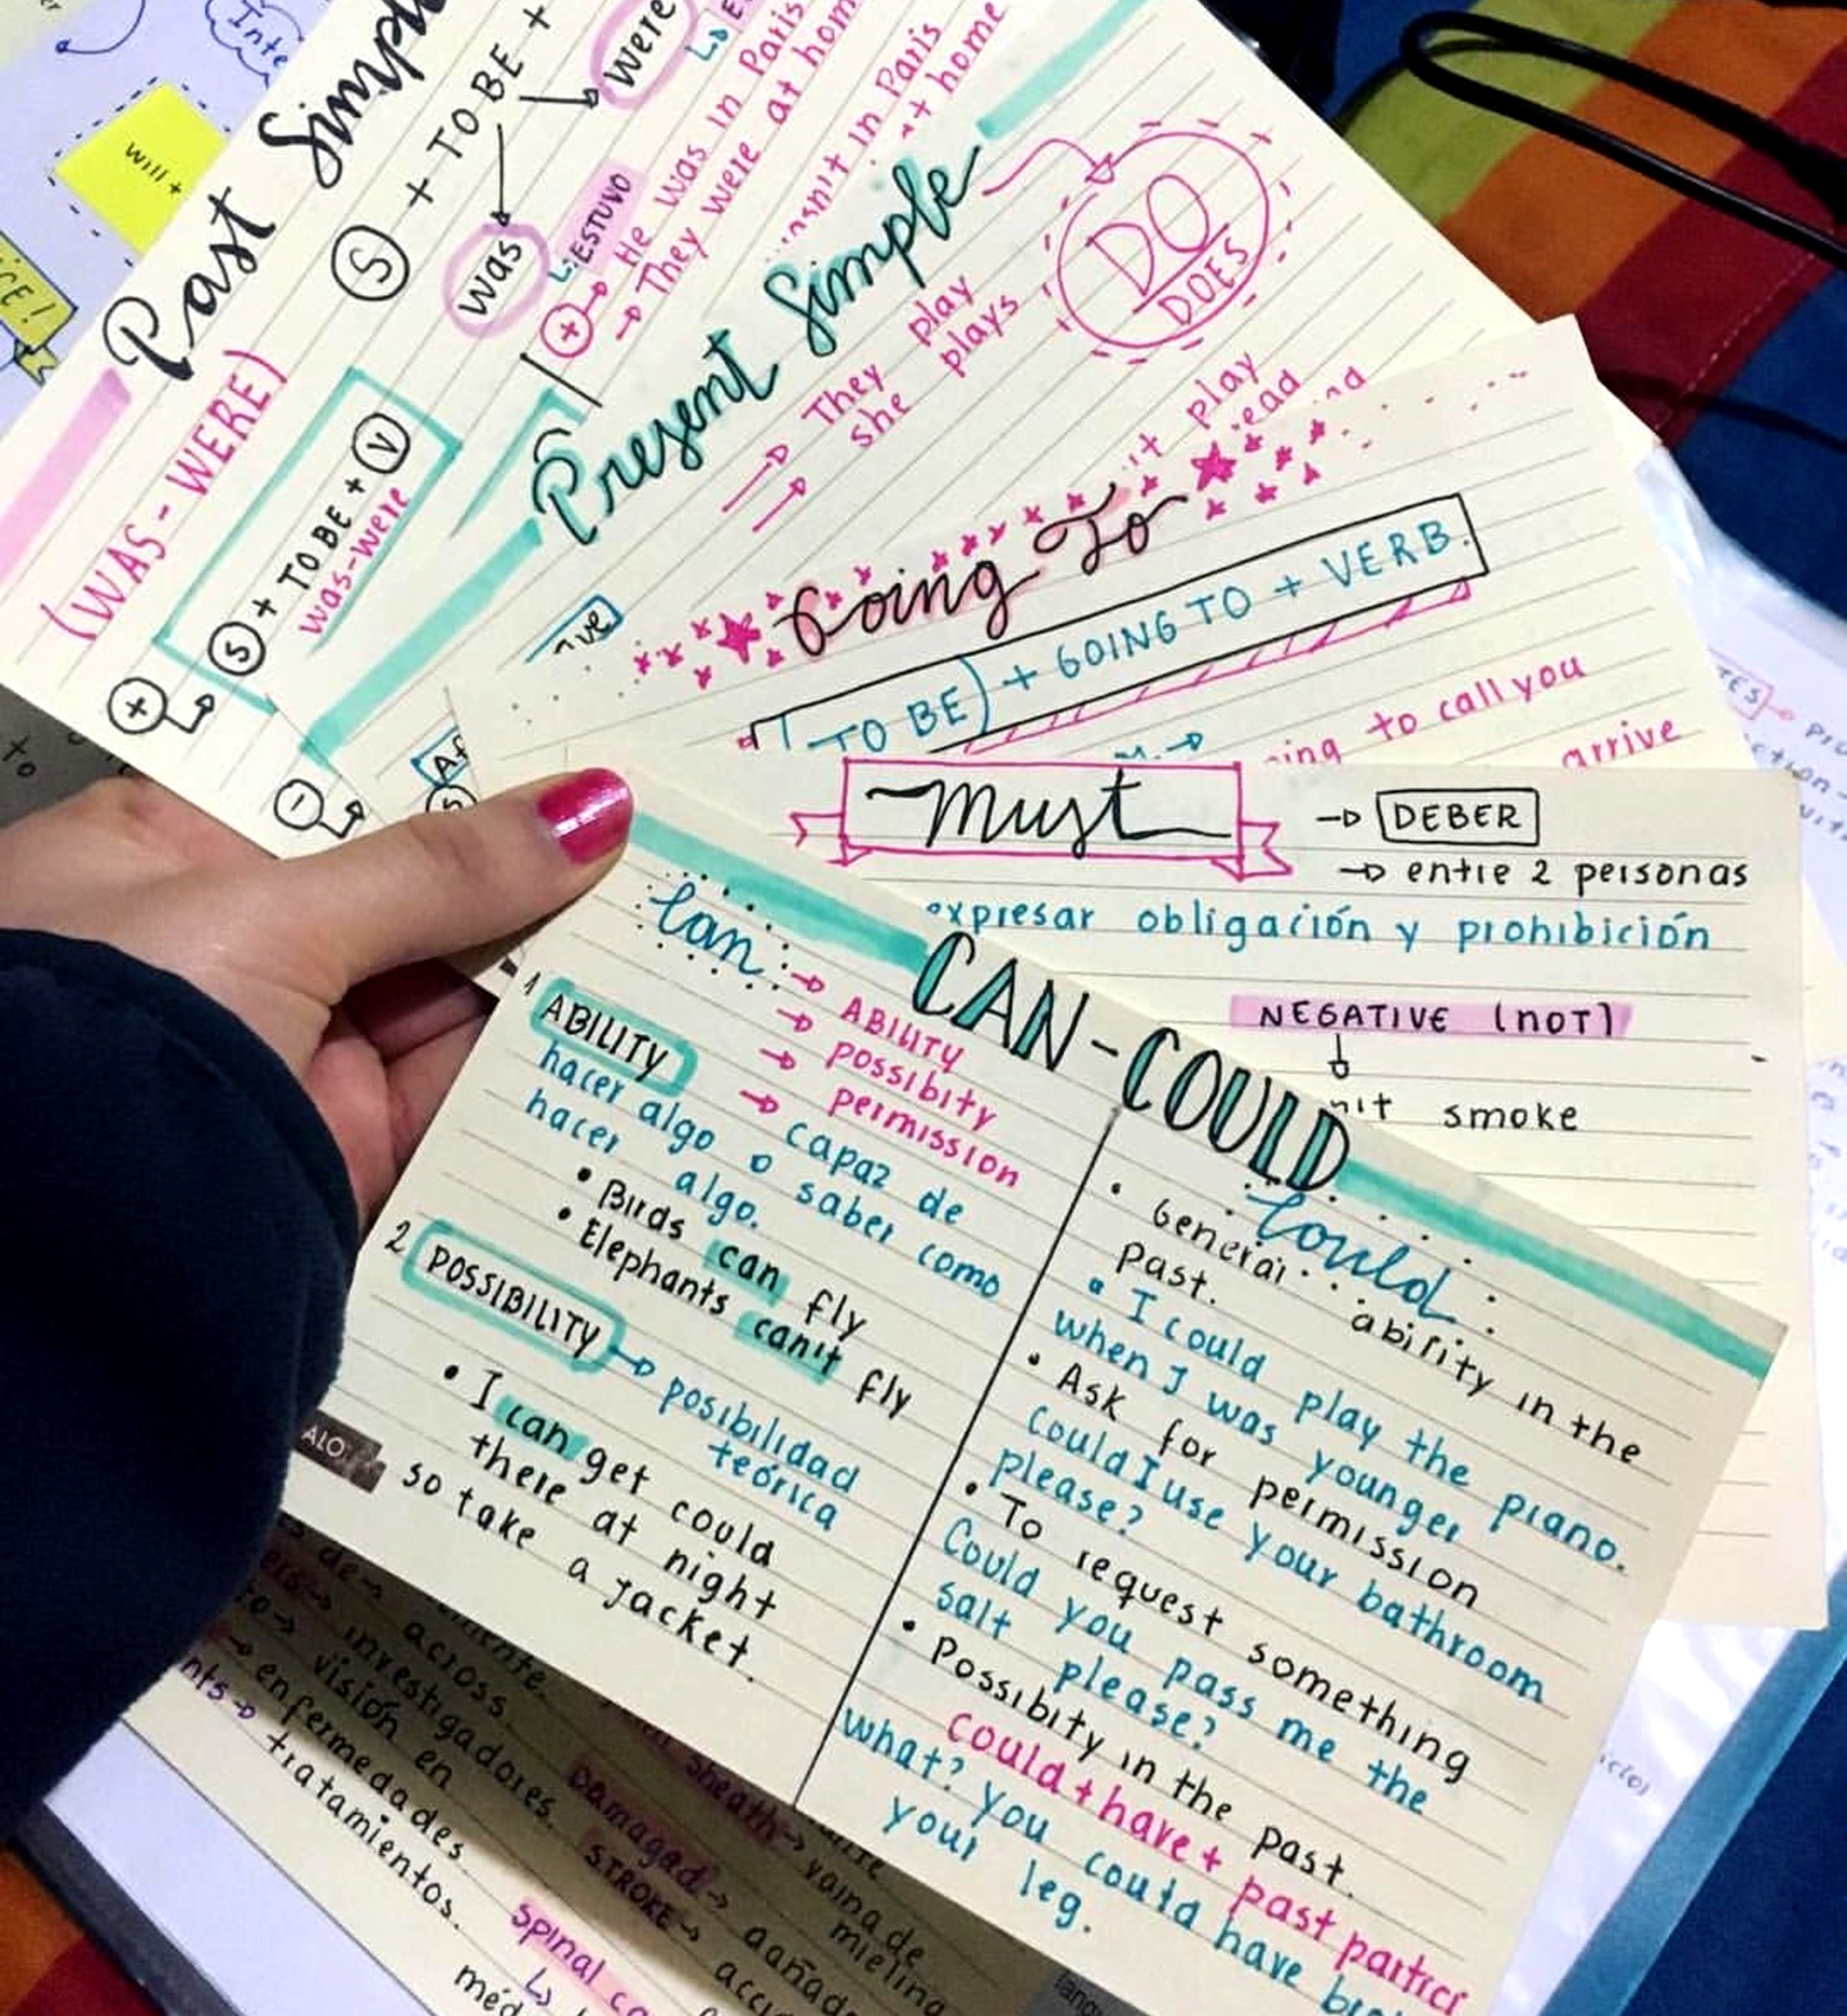 Inte
will +
CE!
Past Simple
(WAS - WERE)
S + TO BE +
was
were
ESTUVO
S + TO BE + V
was-were
+
-
+ He was in Paris
They were at home
in Paris
home
Present Simple
DO
DOES
They play
She plays
play
Going To
TO BE) + GOING TO + VERB.
to call you
arrive
Must
DEBER
entre 2 personas
expresar obligación y prohibición
NEGATIVE (NOT)
smoke
CAN-COULD
Can
ABILITY
possibity
permission
1 ABILITY
capaz de
hacer algo o saber como
hacer algo.
• Birds can fly
• Elephants can't fly
2 POSSIBILITY
posibilidad
teórica
• I can get could
there at night
so take a jacket.
Could
• General ability in the
past.
• I could play the piano.
when I was younger
• Ask for permission
Could I use your bathroom
please?
• To request something
Could you pass me the
salt please?
• Possibity in the past.
could + have + past partici
what? you could have
your leg.
ALO
across
investigadores.
visión en
enfermedades
tratamientos.
sheath
vaina de
mielina
Damaged
STROKE
spinal